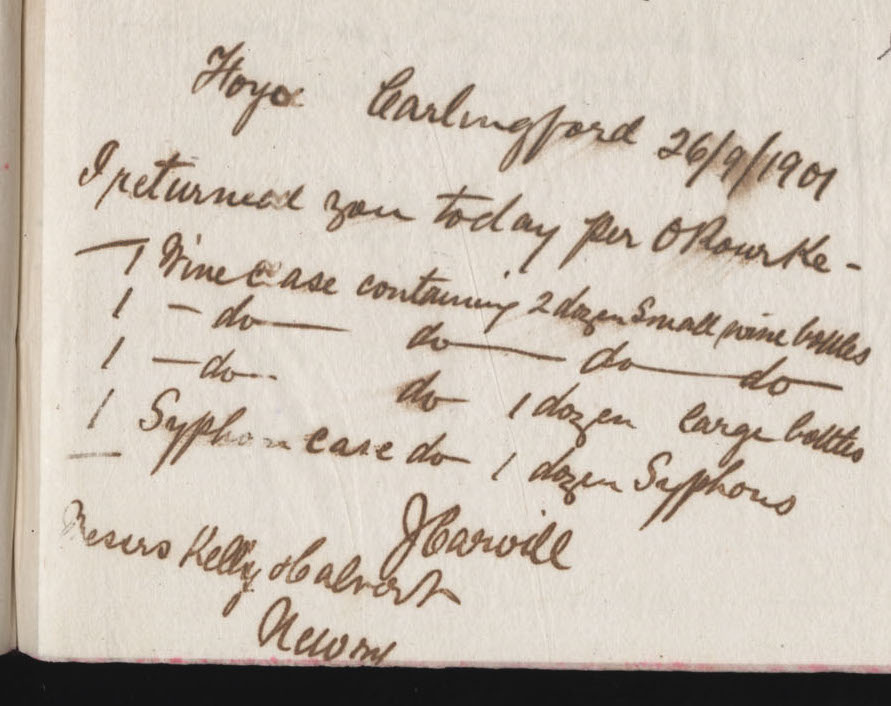 Carlingford 26/9/1901
I returned you today per O Rourke -
1 Wine case containing 2 dozen Small wine bottles
1 - do - do - do - do -
1 - do - do 1 dozen large bottles
1 Syphon case do 1 dozen Syphons
J Carvill
Messrs Kelly & Calvert
Newry